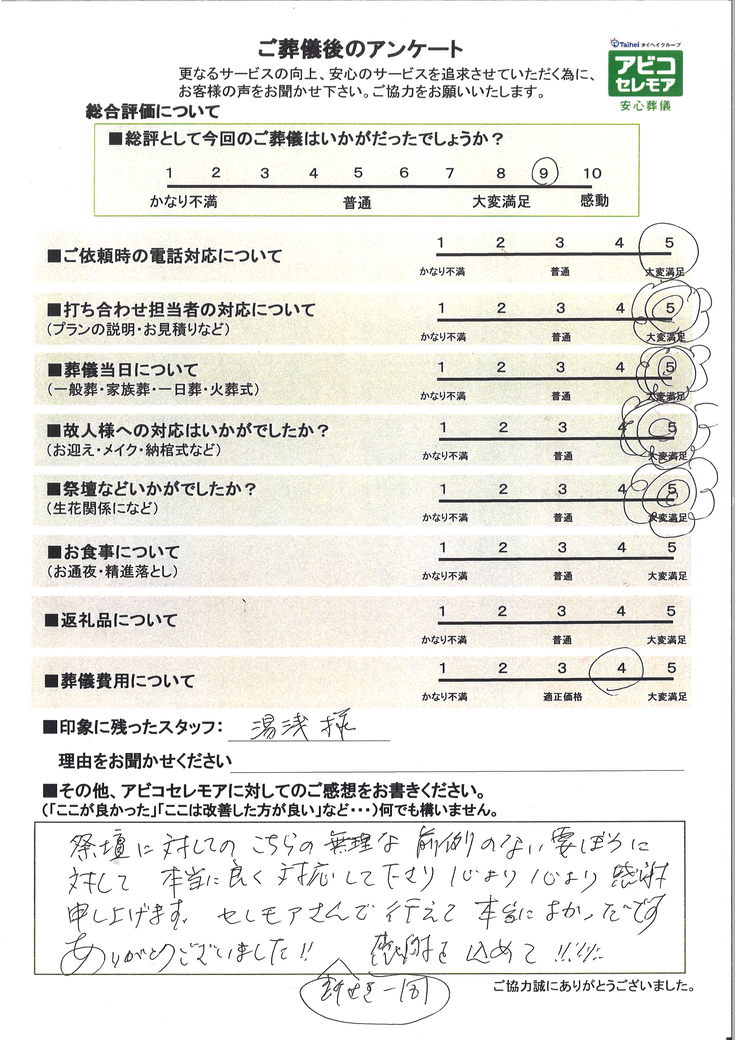 ご葬儀後のアンケート
Taihei タイヘイグループ
アビコ
セレモア
安心葬儀
更なるサービスの向上、安心のサービスを追求させていただく為に、
お客様の声をお聞かせ下さい。ご協力をお願いいたします。
総合評価について
■総評として今回のご葬儀はいかがだったでしょうか？
1 2 3 4 5 6 7 8 9 10
かなり不満 普通 大変満足 感動
■ご依頼時の電話対応について
1 2 3 4 5
かなり不満 普通 大変満足
■打ち合わせ担当者の対応について
(プランの説明・お見積りなど)
1 2 3 4 5
かなり不満 普通 大変満足
■葬儀当日について
(一般葬・家族葬・一日葬・火葬式)
1 2 3 4 5
かなり不満 普通 大変満足
■故人様への対応はいかがでしたか？
(お迎え・メイク・納棺式など)
1 2 3 4 5
かなり不満 普通 大変満足
■祭壇などいかがでしたか？
(生花関係になど)
1 2 3 4 5
かなり不満 普通 大変満足
■お食事について
(お通夜・精進落とし)
1 2 3 4 5
かなり不満 普通 大変満足
■返礼品について
1 2 3 4 5
かなり不満 普通 大変満足
■葬儀費用について
1 2 3 4 5
かなり不満 適正価格 大変満足
■印象に残ったスタッフ： 湯浅様
理由をお聞かせください
■その他、アビコセレモアに対してのご感想をお書きください。
(「ここが良かった」「ここは改善した方が良い」など・・・)何でも構いません。
祭壇に対してのこちらの無理な前例のない要ぼうに
対して 本当に良く対応して下さり 心より心より感謝
申し上げます。セレモアさんで行えて本当によかったです
ありがとうございました!! 感謝を込めて!!!!!
一同
ご協力誠にありがとうございました。